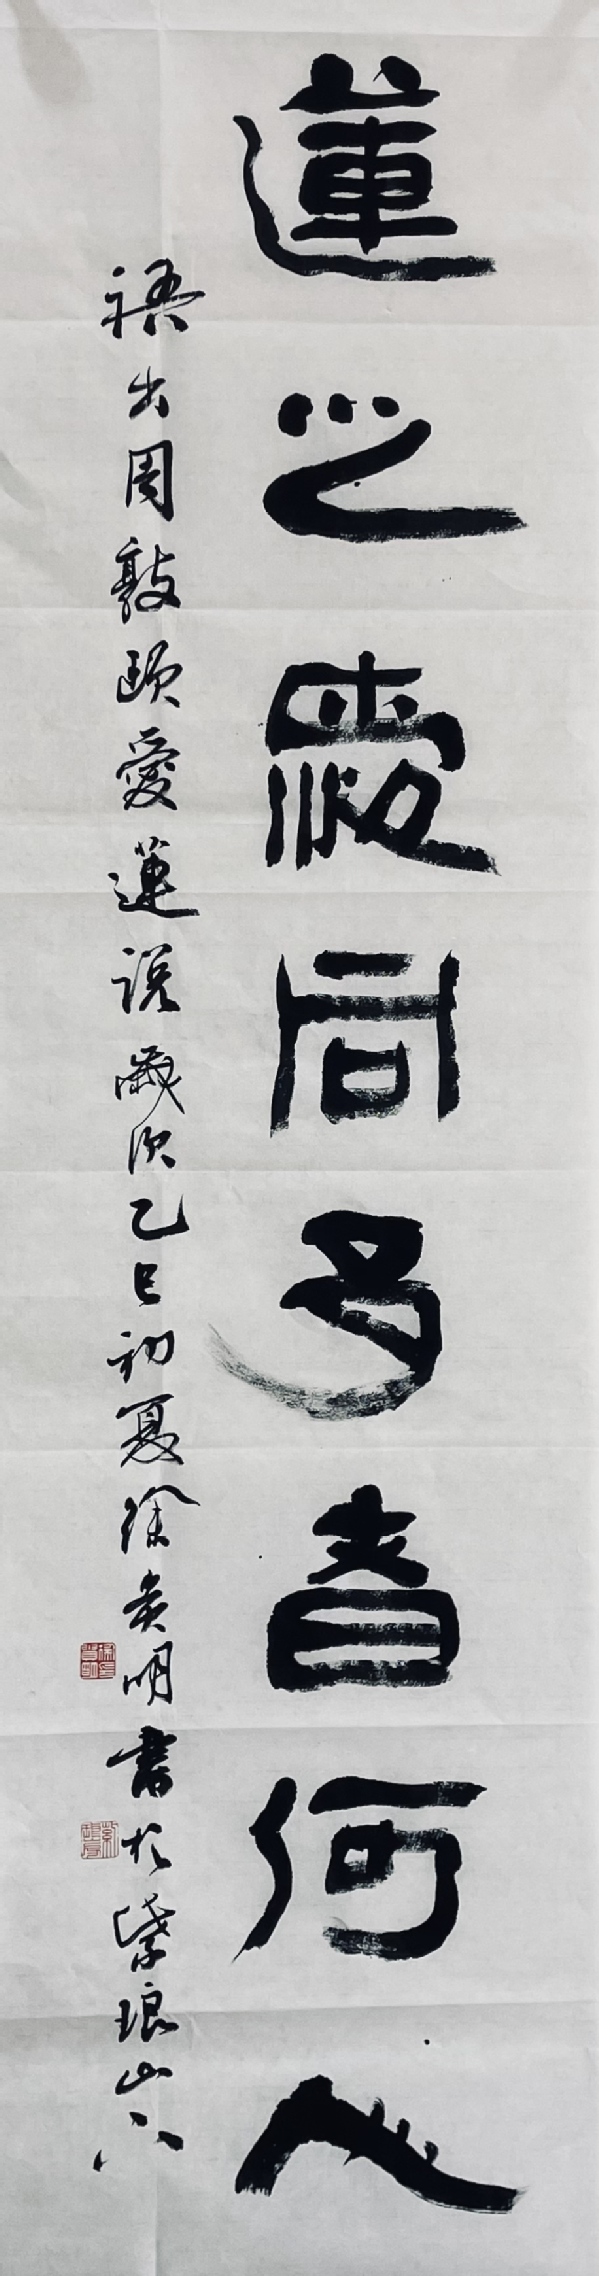 蓮之愛同予者何人
語出周敦頤愛蓮説歲次乙巳初夏徐貴明書於紫琅山下